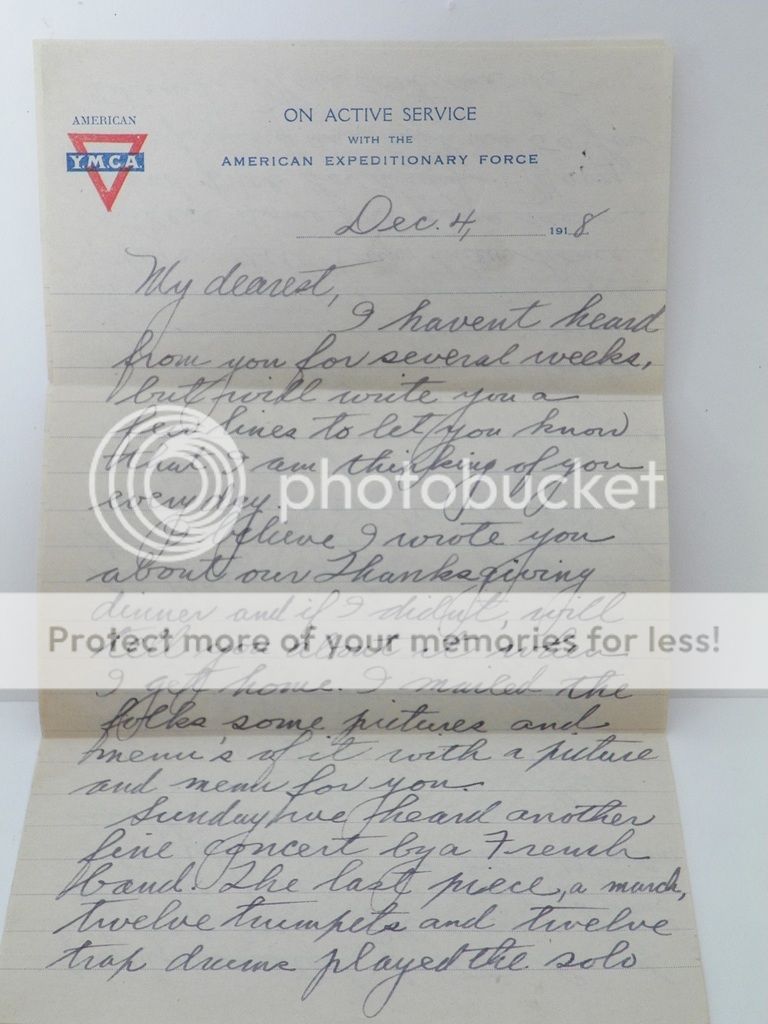 AMERICAN
Y.M.C.A.
ON ACTIVE SERVICE
WITH THE
AMERICAN EXPEDITIONARY FORCE
Dec. 4, 1918
My dearest,
I havent heard
from you for several weeks,
but will write you a
few lines to let you know
that I am thinking of you
everyday.
I believe I wrote you
about our Thanksgiving
dinner and if I didn't, will
tell you about it when
I get home. I mailed the
folks some pictures and
menu's of it with a picture
and menu for you.
Sunday we heard another
fine concert by a French
band. The last piece, a march,
twelve trumpets and twelve
trap drums played the solo
photobucket
Protect more of your memories for less!